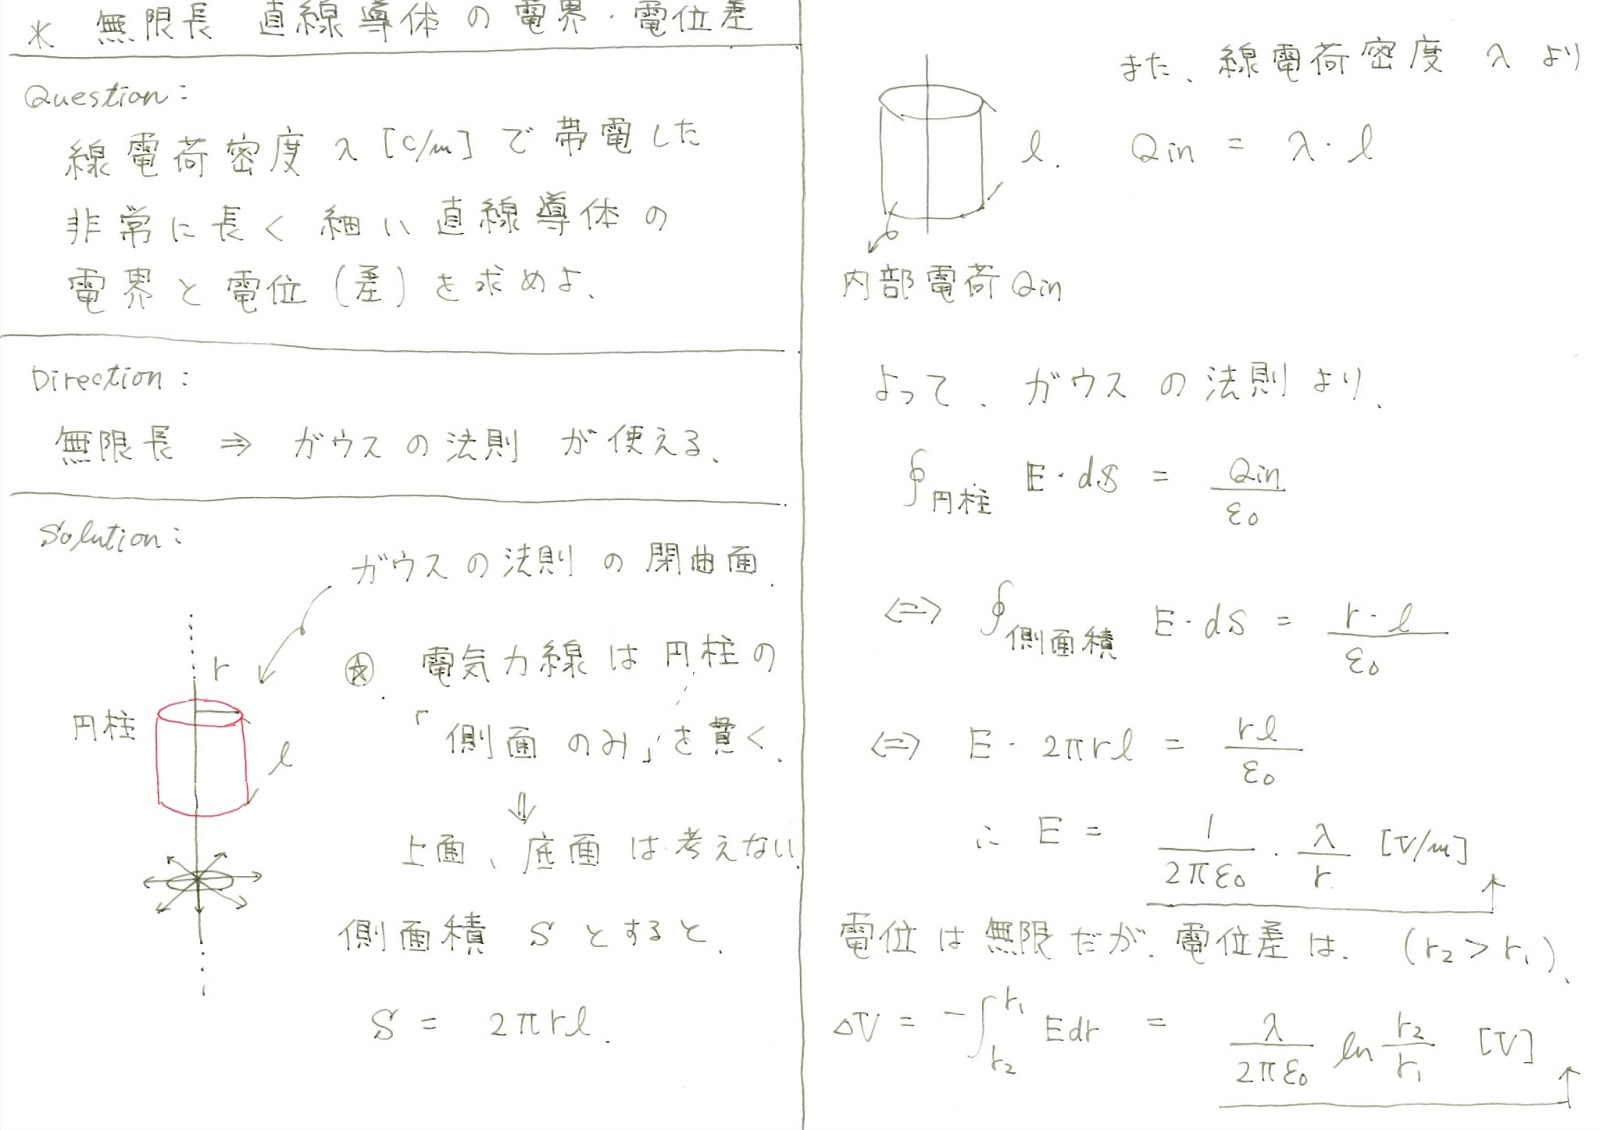 * 無限長 直線導体の電界・電位差
Question:
線電荷密度 λ [C/m] で帯電した
非常に長く細い直線導体の
電界と電位(差)を求めよ.
Direction:
無限長 ⇒ ガウスの法則 が使える.
Solution:
ガウスの法則の閉曲面.
r
円柱
l
☆. 電気力線は円柱の
「側面のみ」を貫く.
⇓
上面、底面は考えない
側面積 S とすると.
S = 2πrl.
また、線電荷密度 λ より
l. Qin = λ・l
内部電荷 Qin
よって、ガウスの法則より.
∮円柱 E・dS = Qin/ε0
⇔ ∮側面積 E・dS = r・l/ε0
⇔ E・2πrl = rl/ε0
∴ E = 1/2πε0 ・ λ/r [V/m]
電位は無限だが、電位差は. (r2 > r1).
ΔV = -∫r2 r1 Edr = λ/2πε0 ln r2/r1 [V]